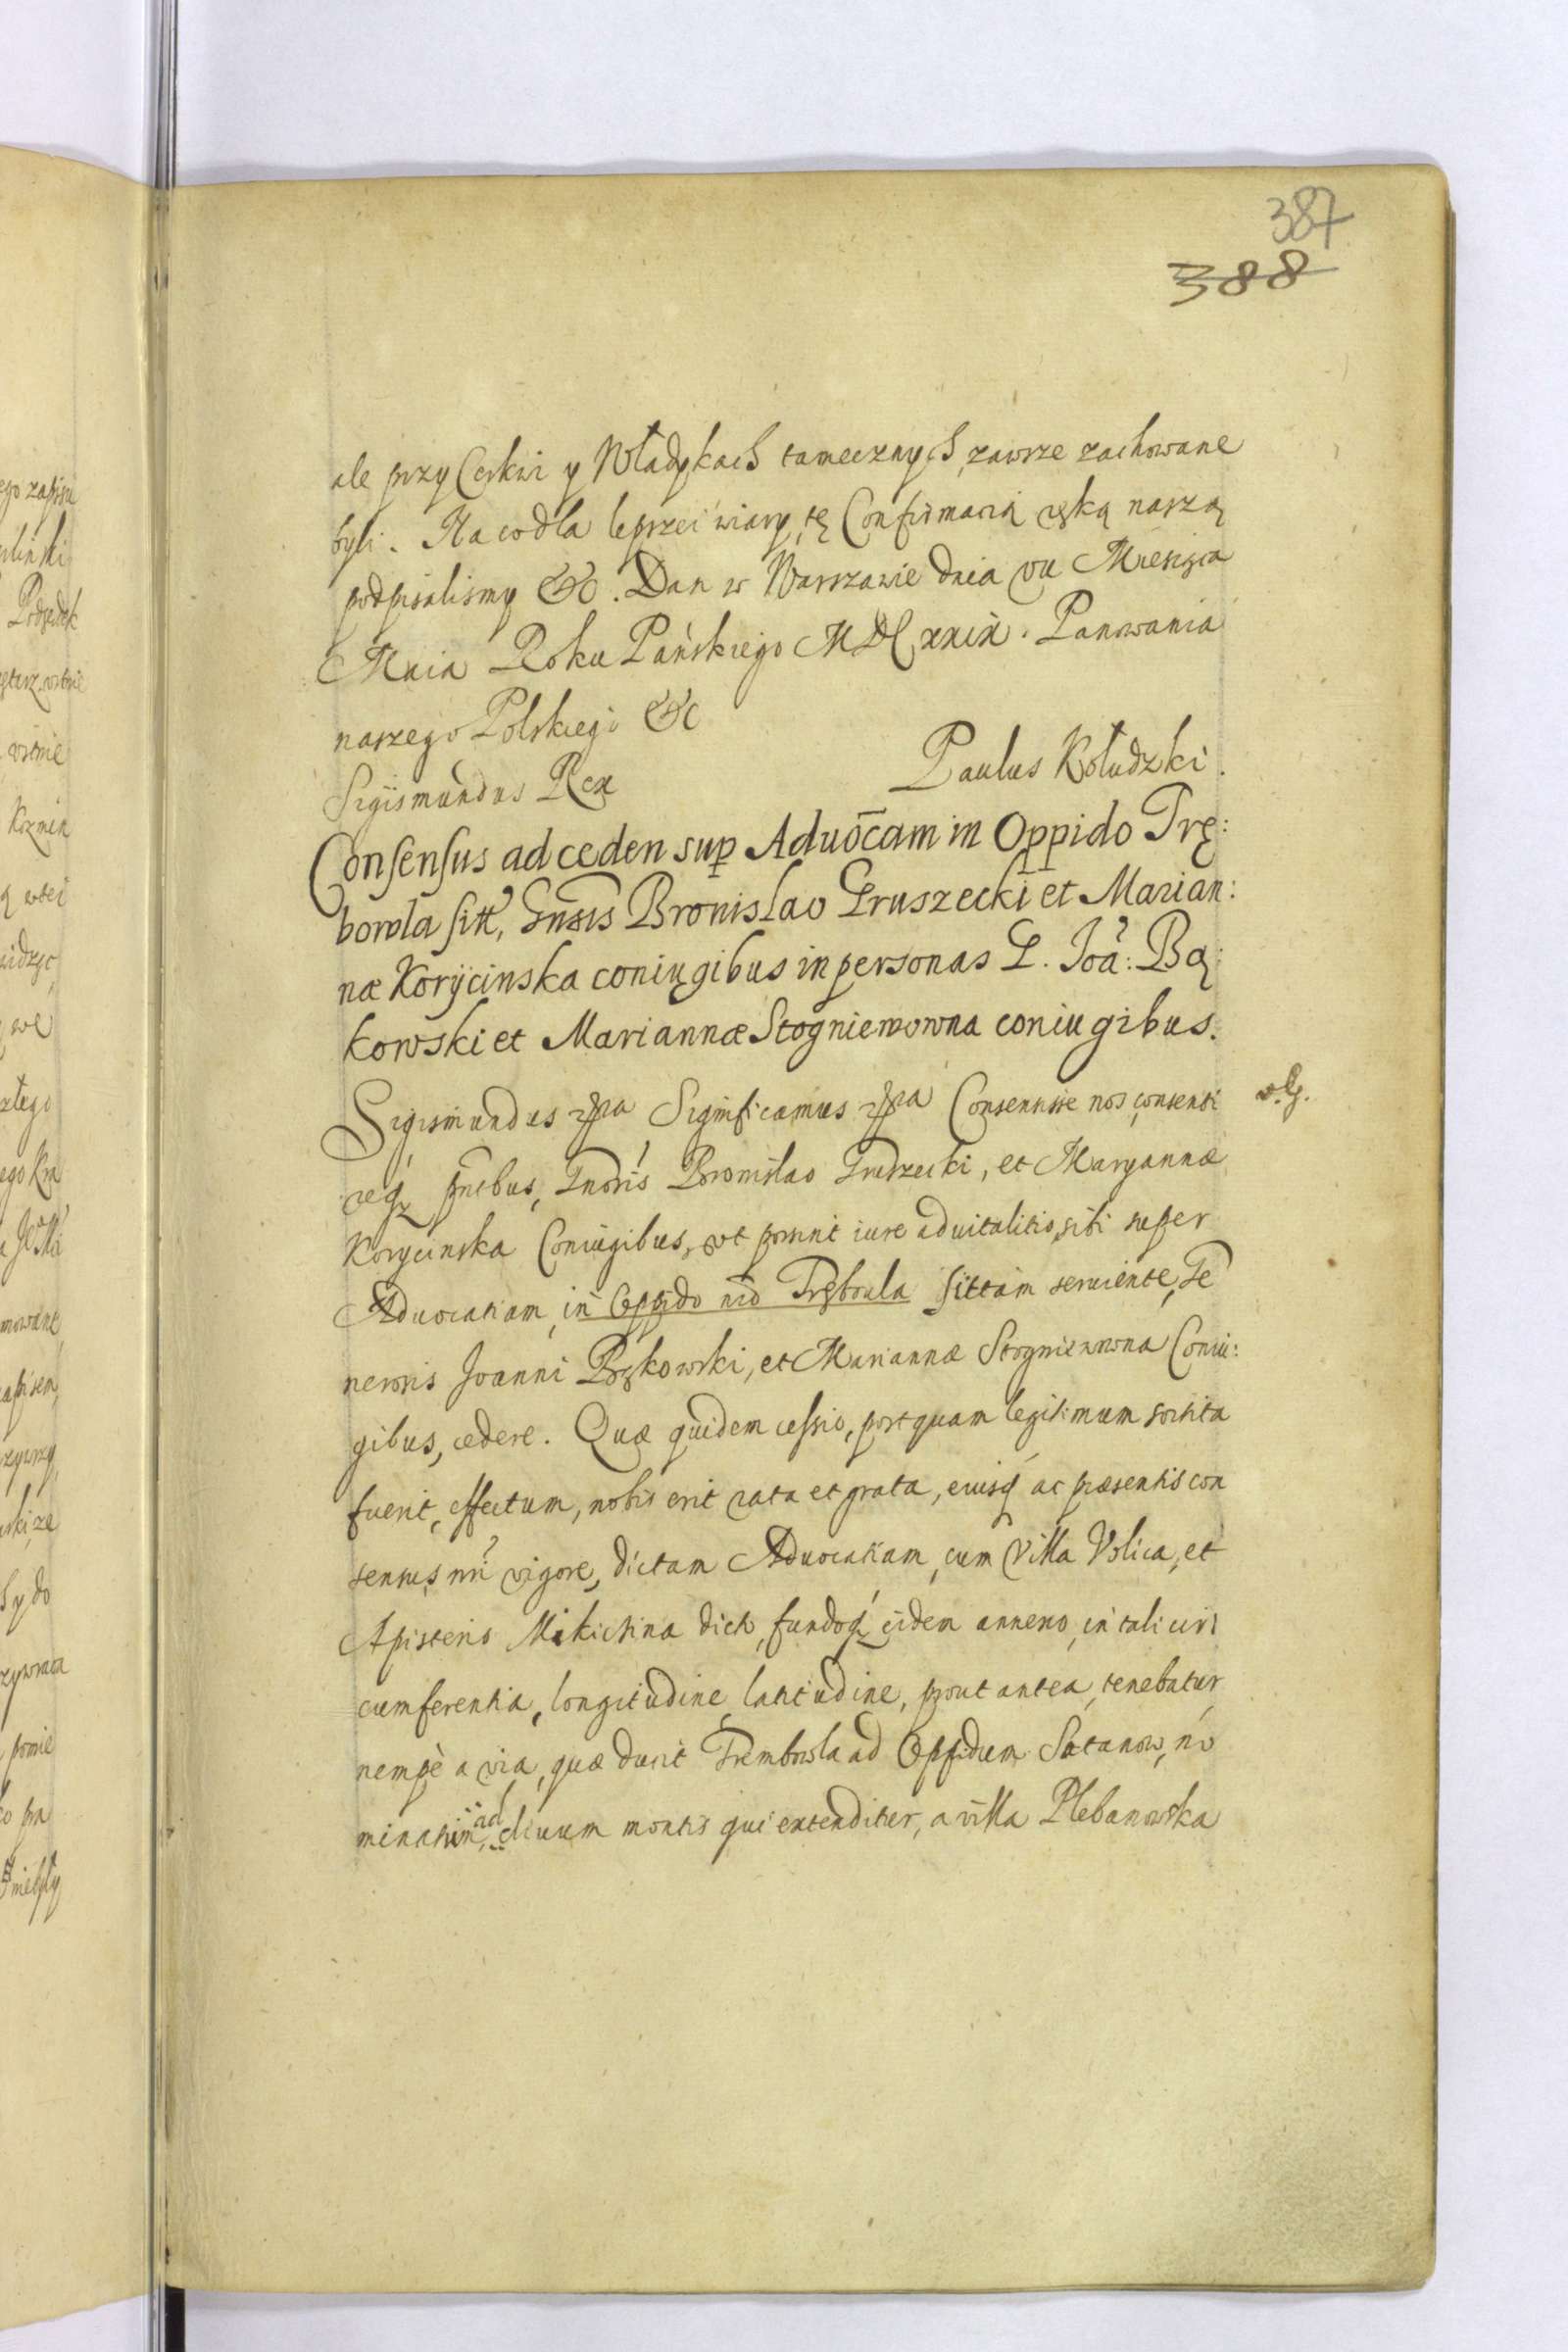 387
388
ale przy Cerkwi y Władykach tamecznych, zawsze zachowane
byli. Na co dla lepszei wiary, tę Confirmacią ręką naszą
podpisalismy &c. Dan w Warszawie dnia VII Miesiąca
Maia Roku Pańskiego MDCXXIX. Panowania
naszego Polskiego &c
Sigismundus Rex
Paulus Kołudzki.
Consensus ad ceden sup Aduōcam in Oppido Trę:
bowla sitt, Gnsis Bronislao Gruszecki et Marian:
næ Korÿcinska coniugibus in personas G. Joā: Bą:
kowski et Mariannæ Stogniewowna coniugibus.
Sigismundus Significamus Consensisse nos, consenti
v. g.
req pntbus, Gnosis Bronislao Gruszecki, et Maryannæ
Korycinska Coniugibus, vt possint iure aduitalitio, sibi super
Aduocatiam, in Oppido nro Trębowla sittam seruiente, Ge
nerosis Joanni Bąkowski, et Mariannæ Stogniewowna Coniu:
gibus, cedere. Quæ quidem cessio, postquam legitimum sortita
fuerit, effectum, nobis erit rata et grata, eiusq ac præsentis con
sensus nri vigore, dictam Aduocatiam, cum Villa Volica, et
Apisterio Mikichina dicto, fundoq eidem annexo, in tali cir
cumferentia, longitudine, latitudine, prout antea, tenebatur
nempè a via, quæ ducit Trembowla ad Oppidum Satanow, no
minatim, ad cliuum montis qui extenditur, a villa Plebanowska